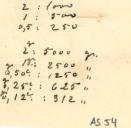 2 : 1000
1 : 500
0,5 : 250
2 : 5000 gr.
1 : 2500 "
0,50 : 1250 "
0,25 : 625 "
0,12 : 312 "
AS 54